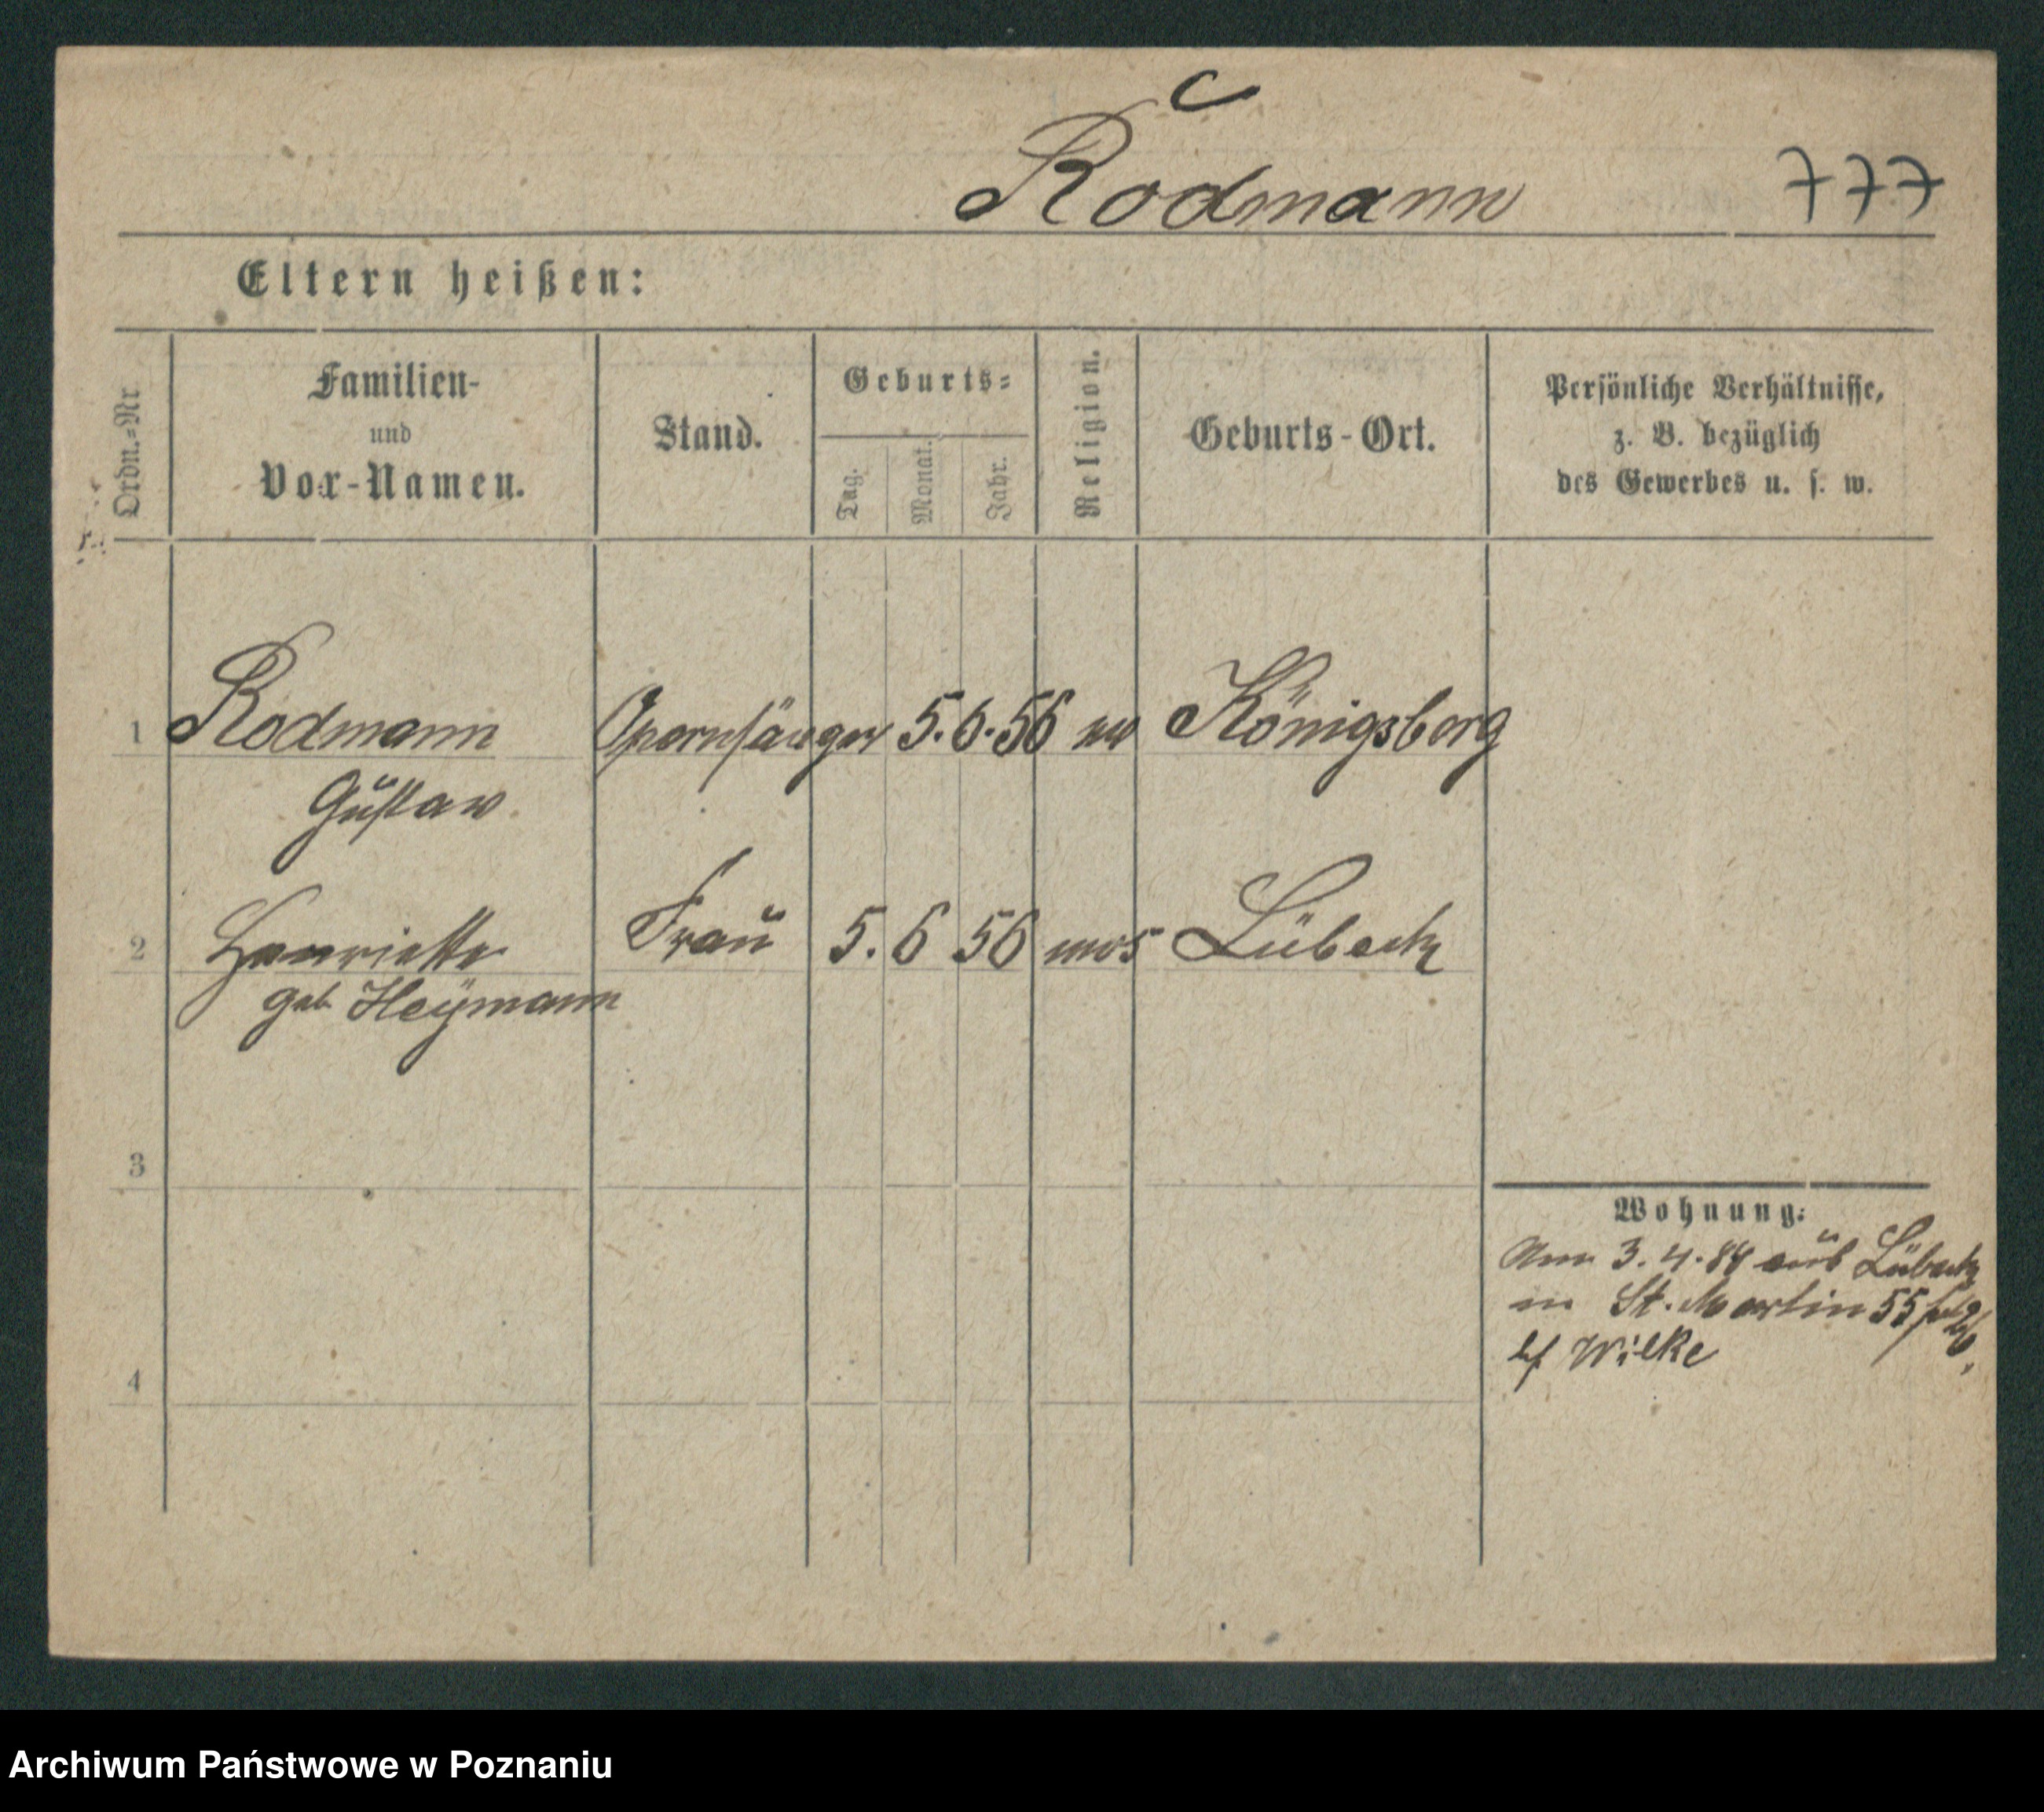 C
Rodmann 777
Eltern heißen:
Ordn.=Nr
Familien-
und
Vor-Namen.
Stand.
Geburts=
Tag.
Monat.
Jahr.
Religion.
Geburts-Ort.
Persönliche Verhältnisse,
z. B. bezüglich
des Gewerbes u. s. w.
1 Rodmann Opernsänger 5.6.56 Königsberg
Gustav
2 Henriette Frau 5.6 56 mos Lübeck
geb Heymann
3
Wohnung:
3.4.84 aus Lübeck
in St. Martin 55
bf Wilke
4
Archiwum Państwowe w Poznaniu